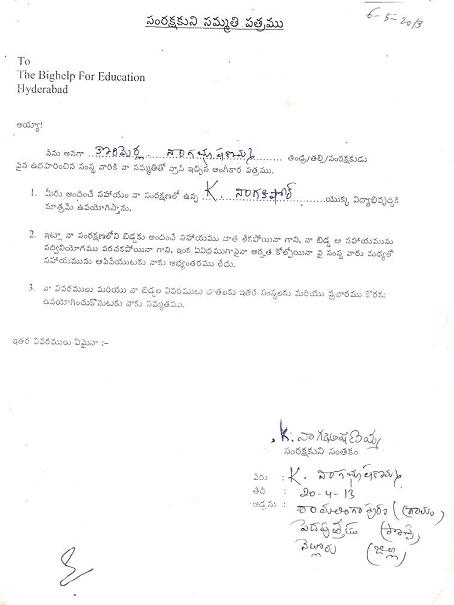 6-5-2013
సంరక్షకుని సమ్మతి పత్రము
To
The Bighelp For Education
Hyderabad
అయ్యా!
నేను అనగా నాగభూషణమ్మ తండ్రి/తల్లి/సంరక్షకుడు
పైన ఉదహరించిన సంస్థ వారికి నా సమ్మతితో వ్రాసి ఇచ్చిన అంగీకార పత్రము.
1. మీరు అందించే సహాయం నా సంరక్షణలో ఉన్న K. నాగకిషోర్ యొక్క విద్యాభివృద్ధికి
మాత్రమే ఉపయోగిస్తాను.
2. ఇట్లా నా సంరక్షణలోని బిడ్డకు అందించే సహాయము దాత లేకపోయినా గాని, నా బిడ్డ ఆ సహాయమును
సద్వినియోగము పరచకపోయినా గాని, ఇంక ఏవిధముగానైనా అర్హత కోల్పోయినా పై సంస్థ వారు మధ్యలో
సహాయమును ఆపివేయుటకు నాకు అభ్యంతరము లేదు.
3. నా వివరములు మరియు నా బిడ్డల వివరములు దాతలకు ఇతర సంస్థలకు మరియు ప్రచారము కొరకు
ఉపయోగించుకొనుటకు నాకు సమ్మతము.
ఇతర వివరములు ఏమైనా :-
K. నాగభూషణమ్మ
సంరక్షకుని సంతకం
పేరు : K. నాగభూషణమ్మ
తేదీ : 20-4-13
అడ్రసు : రామలింగాపురం (గ్రామం)
నెల్లూరు (జిల్లా)